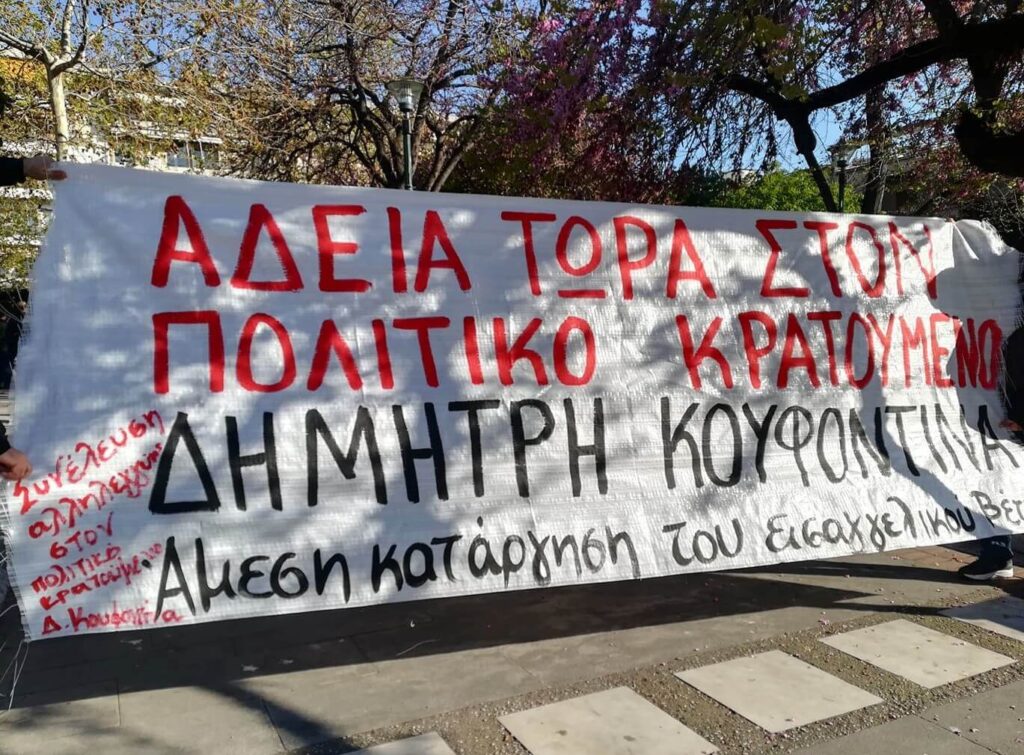 ΑΔΕΙΑ ΤΩΡΑ ΣΤΟΝ
ΠΟΛΙΤΙΚΟ ΚΡΑΤΟΥΜΕΝΟ
ΔΗΜΗΤΡΗ ΚΟΥΦΟΝΤΙΝΑ
Άμεση κατάργηση του εισαγγελικού
Συνέλευση
αλληλεγγύης
στον
πολιτικό
κρατούμενο
Δ. Κουφοντίνα